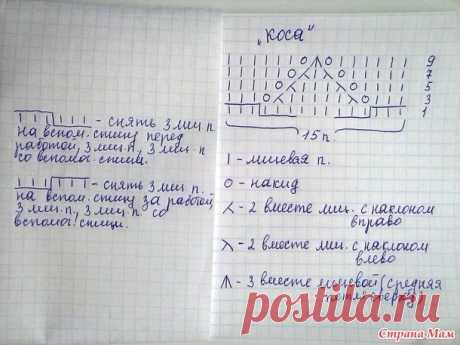 - снять 3 лиц. п.
на вспом. спицу перед
работой, 3 лиц. п., 3 лиц. п
со вспомог. спицы.
- снять 3 лиц п.
на вспом. спицу за работой,
3 лиц. п., 3 лиц. п со
вспомог. спицы.
"Коса"
9
7
5
3
1
15 п.
- лицевая п.
О - накид
- 2 вместе лиц. с наклоном
вправо
- 2 вместе лиц. с наклоном
влево
- 3 вместе лицевой (средняя
postila.ru
Страна Мам